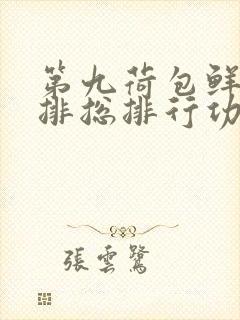 第九荷包鲜
排总排行功
張雲鷺